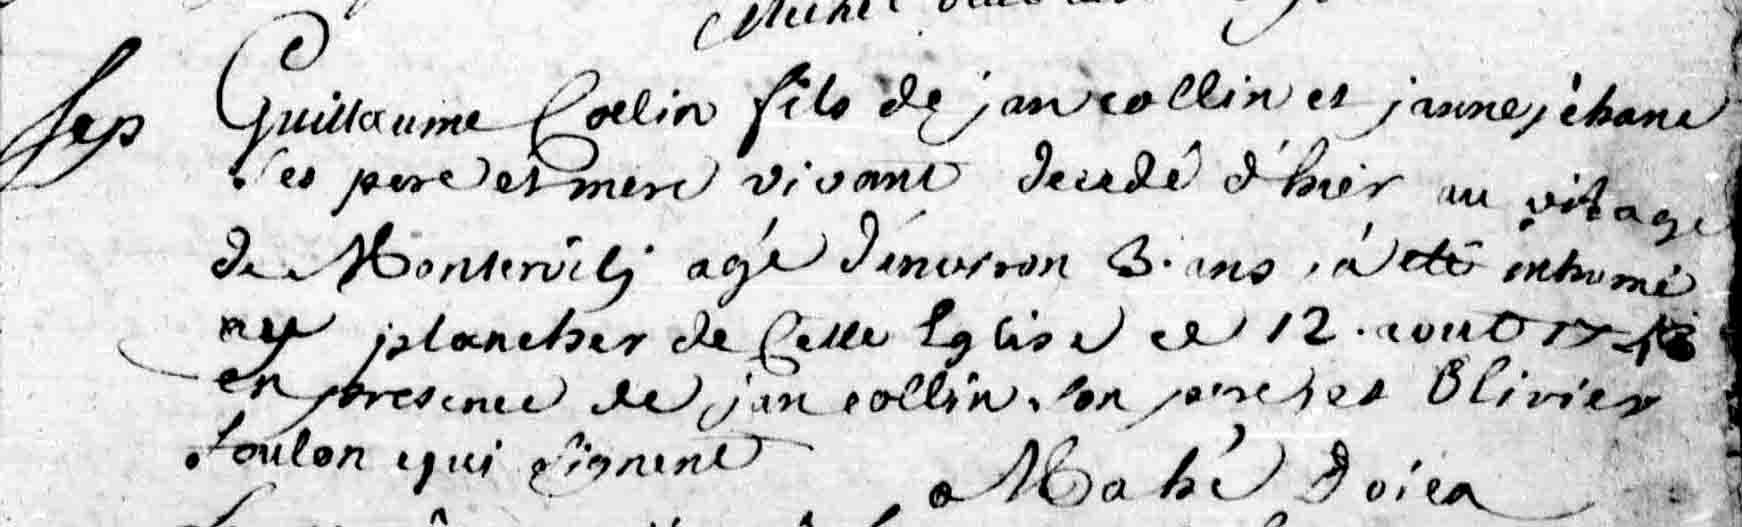 Michel
Sep Guillaume Collin fils de jan collin et janne jéhane
ses pere et mere vivant decedé d'hier au vilage
de Montervily agé d'environ 3. ans, a eté inhumé
au plancher de Cette Eglise ce 12. aout 17
en presence de jan collin son pere et Olivier
toulon qui signent
Mahé